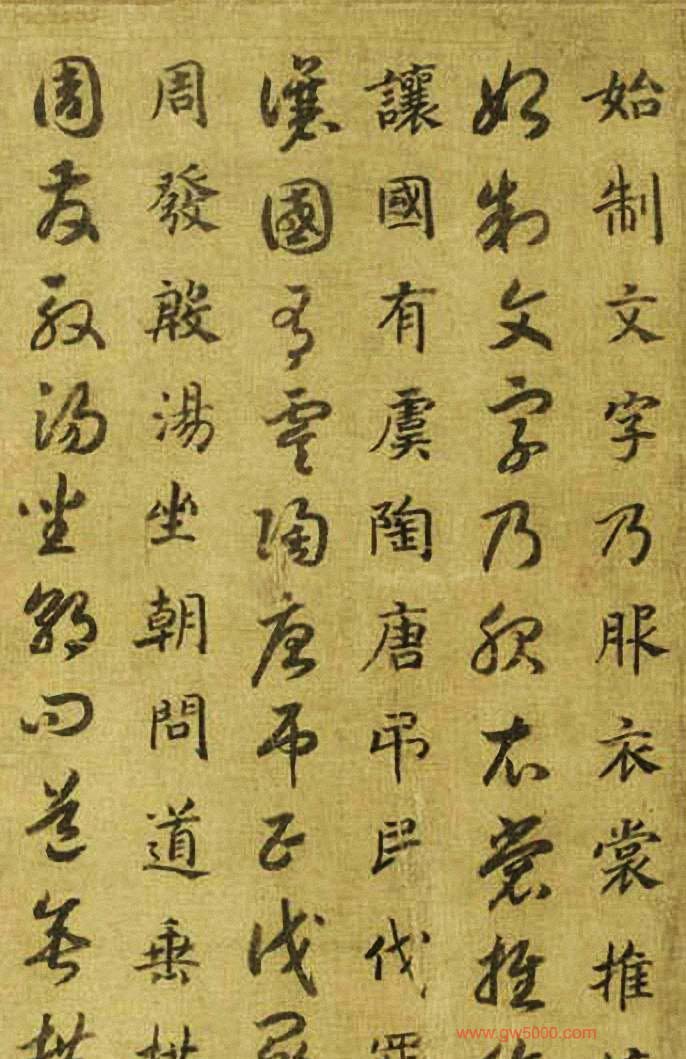 始制文字乃服衣裳推
始制文字乃服衣裳推
讓國有虞陶唐弔民伐罪
讓國有虞陶唐弔民伐罪
周發殷湯坐朝問道垂拱
周發殷湯坐朝問道垂拱
www.gw5000.com